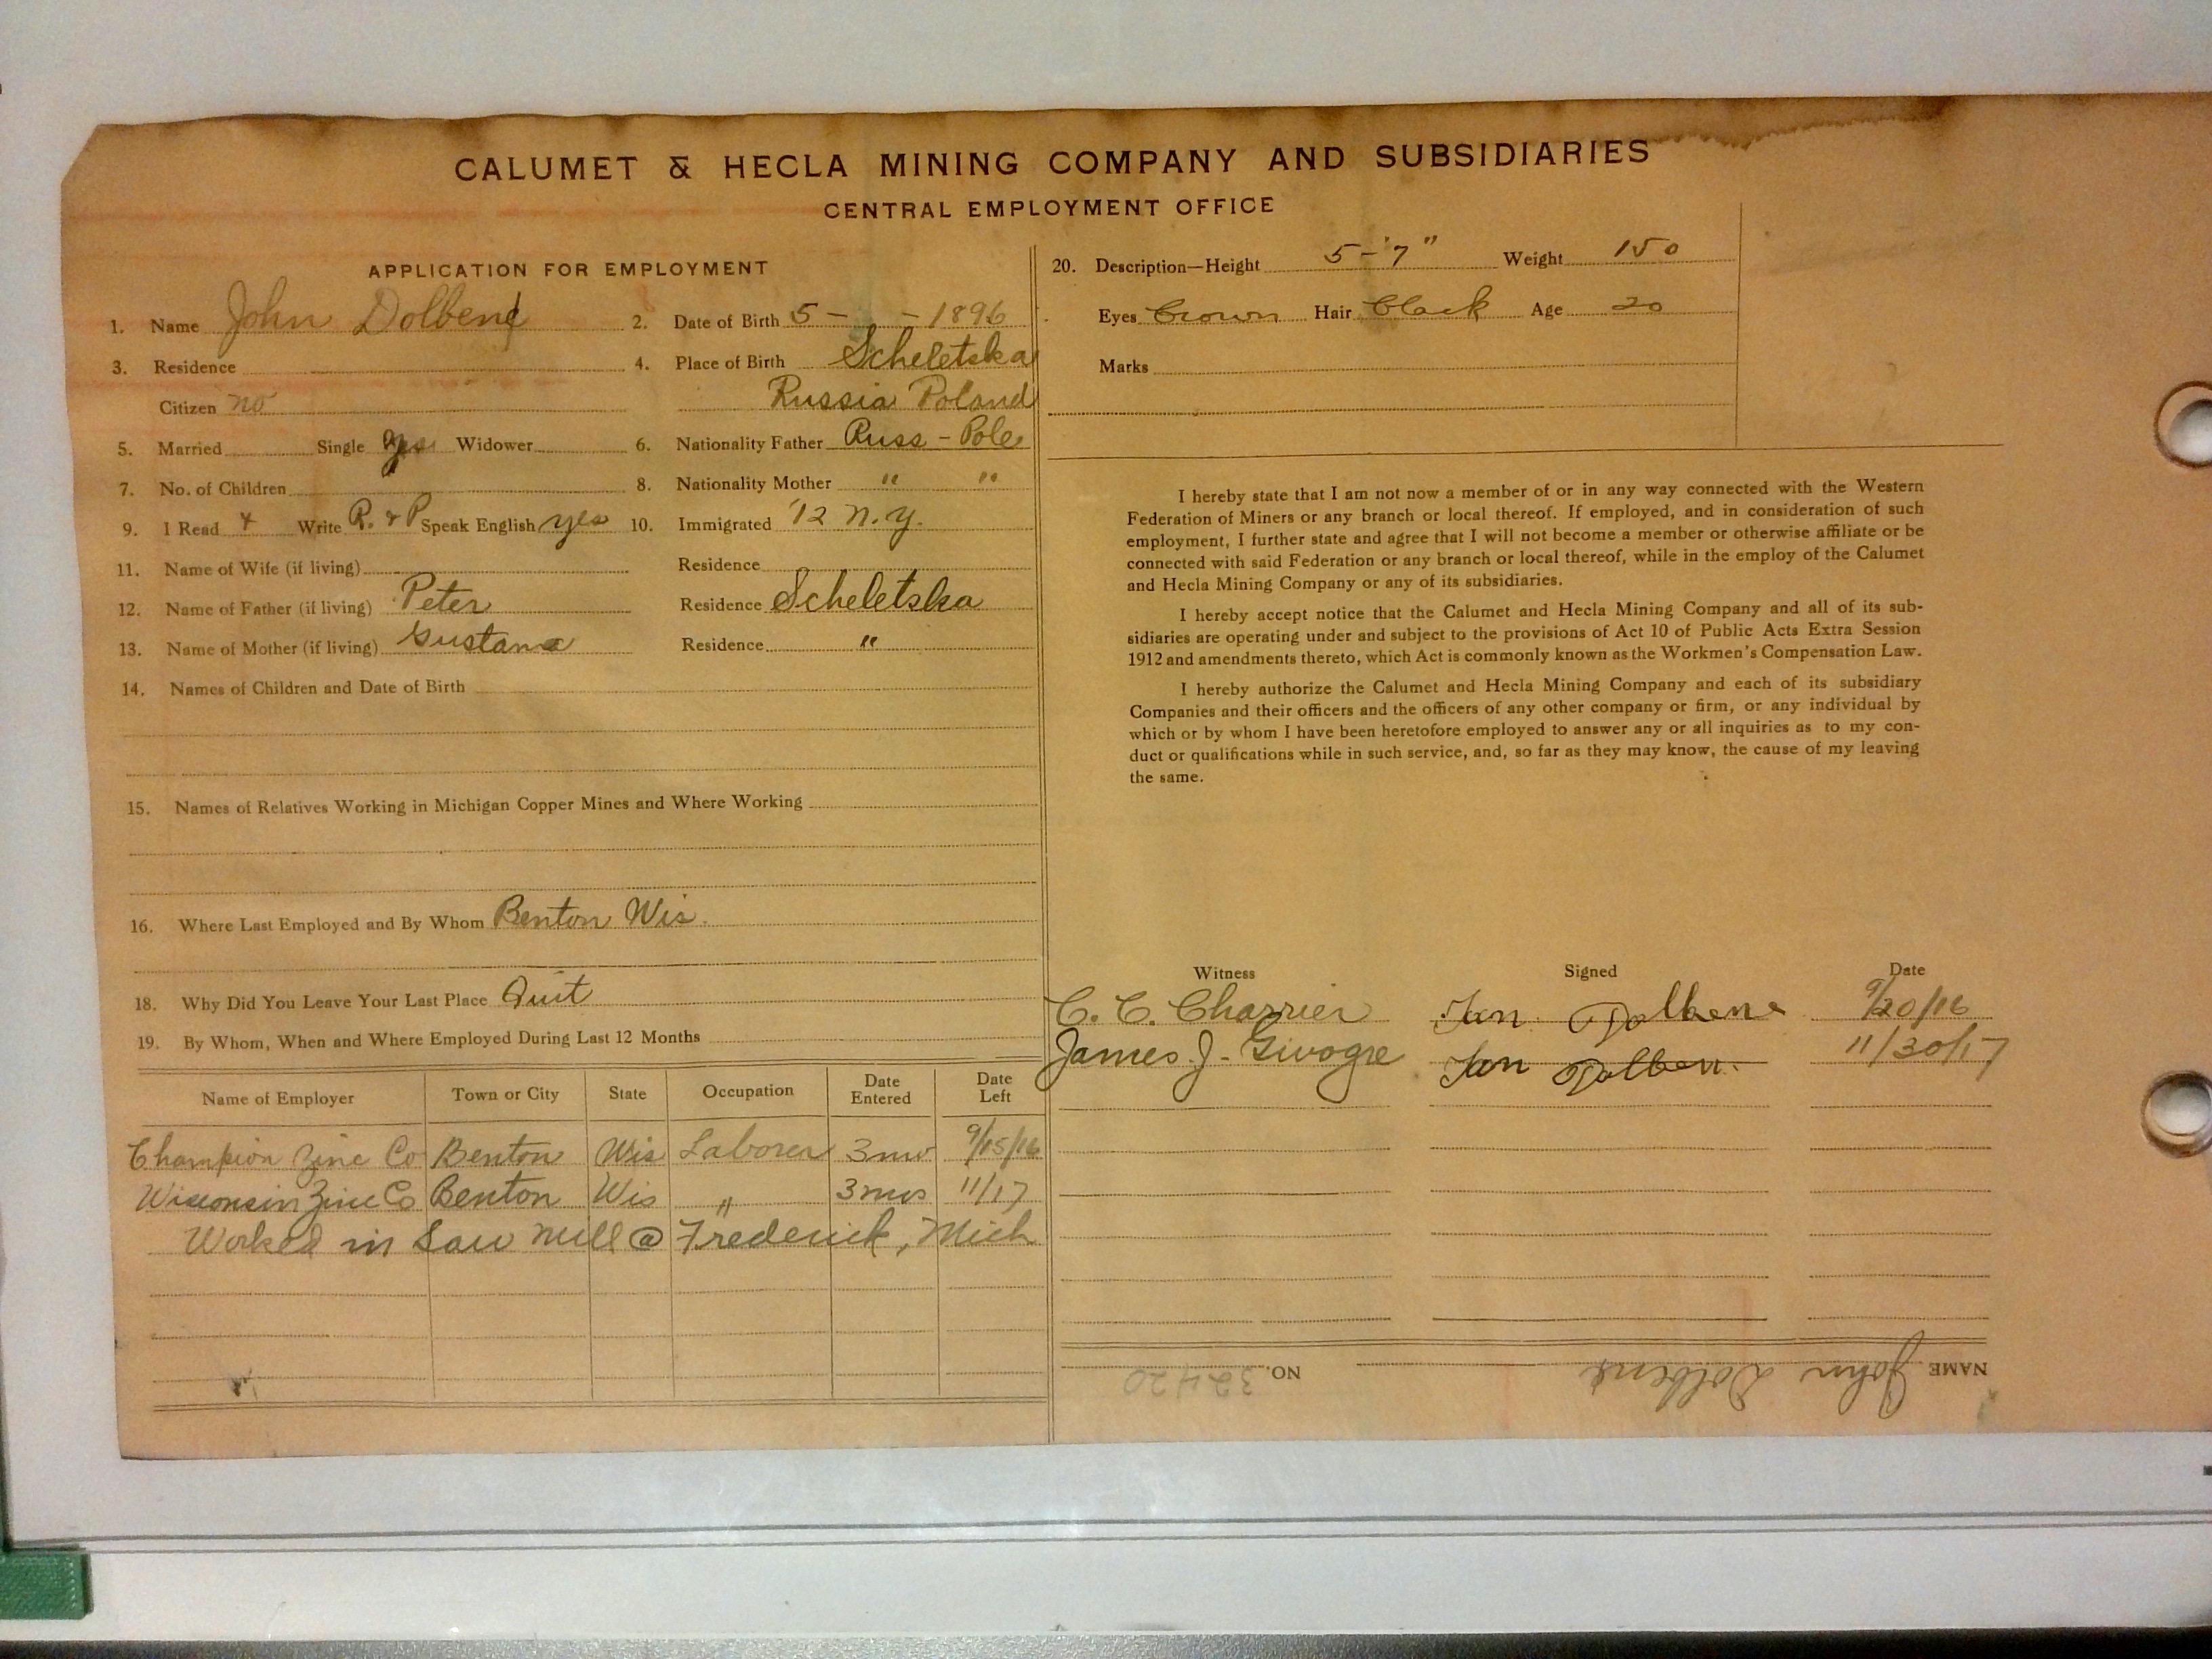 CALUMET & HECLA MINING COMPANY AND SUBSIDIARIES
CENTRAL EMPLOYMENT OFFICE
APPLICATION FOR EMPLOYMENT
1. Name John Dolbene 2. Date of Birth 5- -1896
3. Residence 4. Place of Birth Scheletska
Citizen no Russia Poland
5. Married Single yes Widower 6. Nationality Father Russ-Pole
7. No. of Children 8. Nationality Mother " "
9. I Read & Write R. & P Speak English yes 10. Immigrated '12 N.Y.
11. Name of Wife (if living) Residence
12. Name of Father (if living) Peter Residence Scheletska
13. Name of Mother (if living) Residence "
14. Names of Children and Date of Birth
15. Names of Relatives Working in Michigan Copper Mines and Where Working
16. Where Last Employed and By Whom Benton Wis.
18. Why Did You Leave Your Last Place Quit
19. By Whom, When and Where Employed During Last 12 Months
Name of Employer Town or City State Occupation Date Entered Date Left
Champion Zinc Co Benton Wis Laborer 3 mo 9/15/16
Wisconsin Zinc Co Benton Wis " 3 mos 11/17
Worked in Saw Mill @ Frederick, Mich
20. Description—Height 5-'7" Weight 150
Eyes Brown Hair Black Age 20
Marks
I hereby state that I am not now a member of or in any way connected with the Western
Federation of Miners or any branch or local thereof. If employed, and in consideration of such
employment, I further state and agree that I will not become a member or otherwise affiliate or be
connected with said Federation or any branch or local thereof, while in the employ of the Calumet
and Hecla Mining Company or any of its subsidiaries.
I hereby accept notice that the Calumet and Hecla Mining Company and all of its sub-
sidiaries are operating under and subject to the provisions of Act 10 of Public Acts Extra Session
1912 and amendments thereto, which Act is commonly known as the Workmen's Compensation Law.
I hereby authorize the Calumet and Hecla Mining Company and each of its subsidiary
Companies and their officers and the officers of any other company or firm, or any individual by
which or by whom I have been heretofore employed to answer any or all inquiries as to my con-
duct or qualifications while in such service, and, so far as they may know, the cause of my leaving
the same.
Witness Signed Date
C. C. Charrier Jan Dolbene 9/20/16
James J. Jan Dolben 11/30/17
NAME John Dolbene NO. 32420